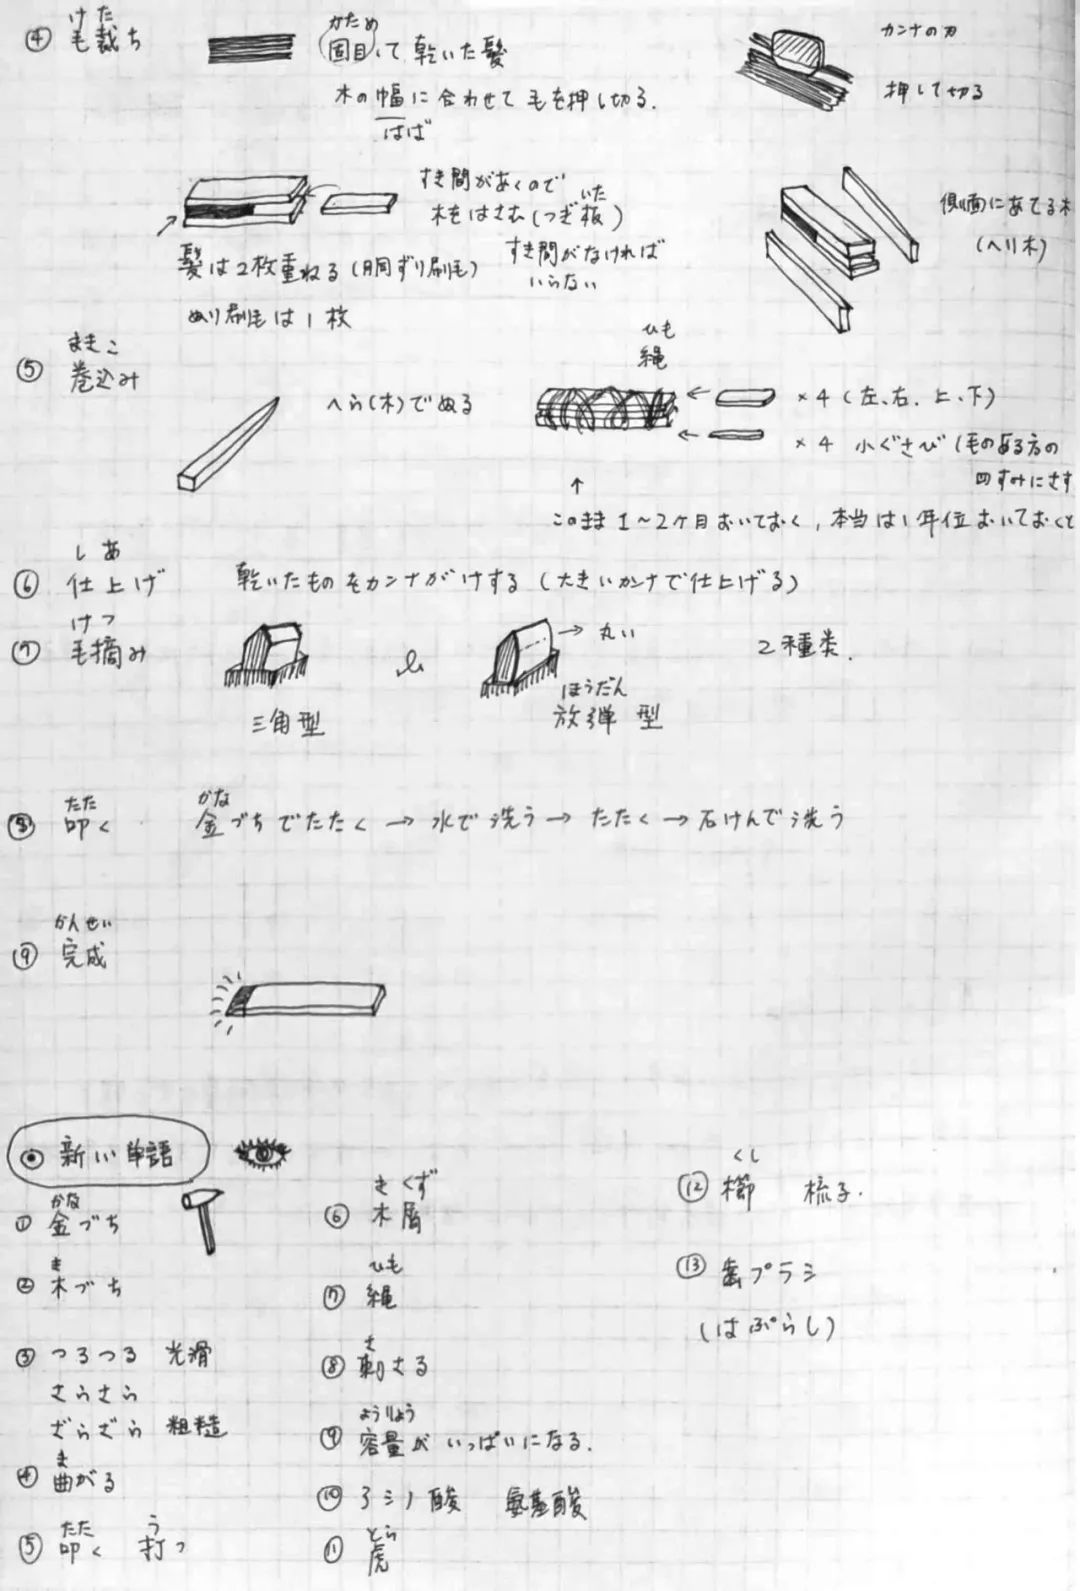 ④ 毛裁ち
けた
固目して乾いた髪
かため
木の幅に合わせて毛を押し切る.
はば
カンナの刃
押して切る
すき間があくので
木をはさむ(つぎ板)
いた
すき間がなければ
いらない
髪は2枚重ねる(胴ずり刷毛)
ぬり刷毛は1枚
側面にあてる木
(ヘリ木)
⑤ 巻込み
まきこ
へら(木)でぬる
ひも
縄
×4(左、右、上、下)
×4 小ぐさび(毛のある方の
四すみにさす
↑
このまま1~2ケ月おいておく,本当は1年位おいておくと
⑥ 仕上げ
しあ
乾いたものをカンナがけする(大きいカンナで仕上げる)
⑦ 毛摘み
けつ
三角型
→ 丸い
ほうだん
放弾型
2種類.
⑧ 叩く
たた
かな
金づちでたたく→水で洗う→たたく→石けんで洗う
⑨ 完成
かんせい
新い単語
① 金づち
かな
② 木づち
き
③ つるつる 光滑
さらさら
ざらざら 粗糙
④ 曲がる
ま
⑤ 叩く 打つ
たた う
⑥ 木屑
きくず
⑦ 縄
ひも
⑧ 刺さる
さ
⑨ 容量がいっぱいになる.
ようりょう
⑩ アミノ酸 氨基酸
⑪ 虎
とら
⑫ 櫛 梳子.
くし
⑬ 歯プラシ
(はぷらし)